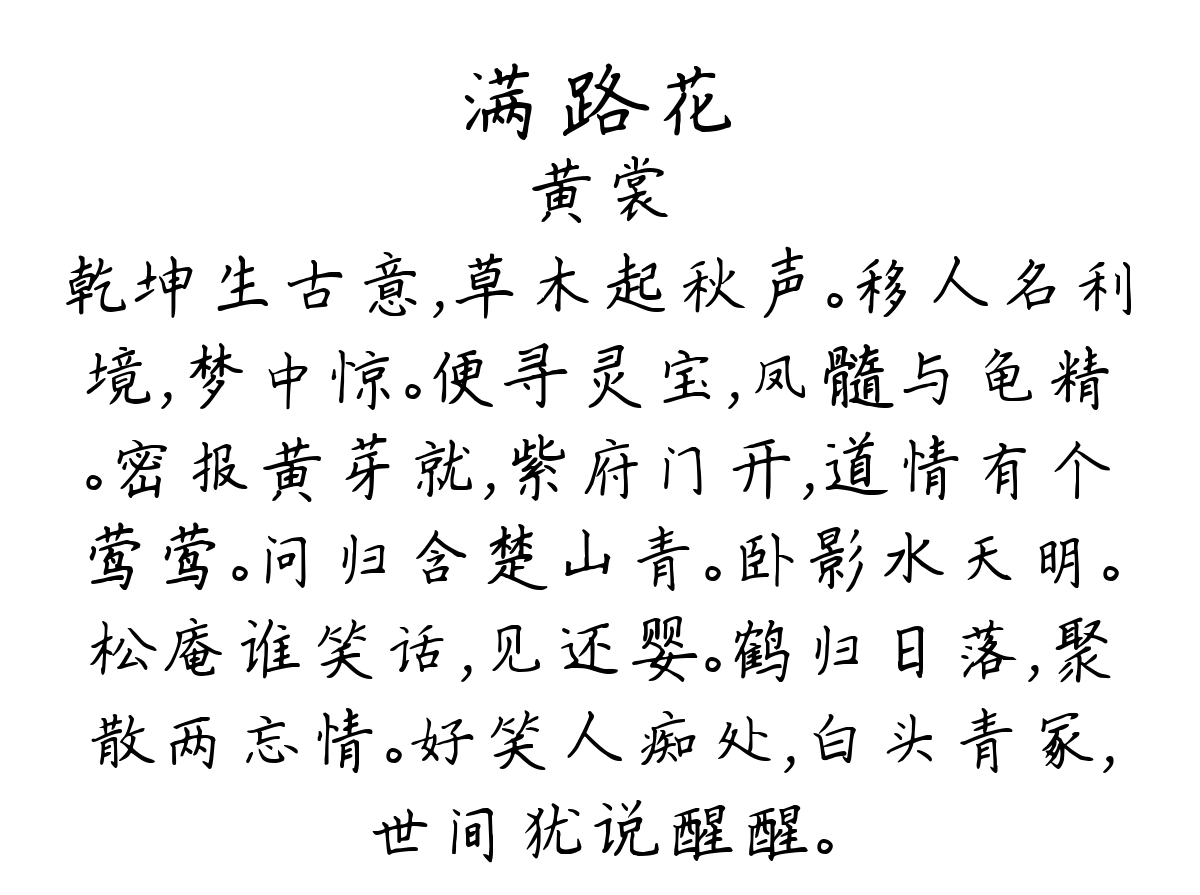 满路花
黄裳
乾坤生古意,草木起秋声。移人名利
境,梦中惊。便寻灵宝,凤髓与龟精
。密报黄芽就,紫府门开,道情有个
莺莺。问归含楚山青。卧影水天明。
松庵谁笑话,见还婴。鹤归日落,聚
散两忘情。好笑人痴处,白头青冢,
世间犹说醒醒。